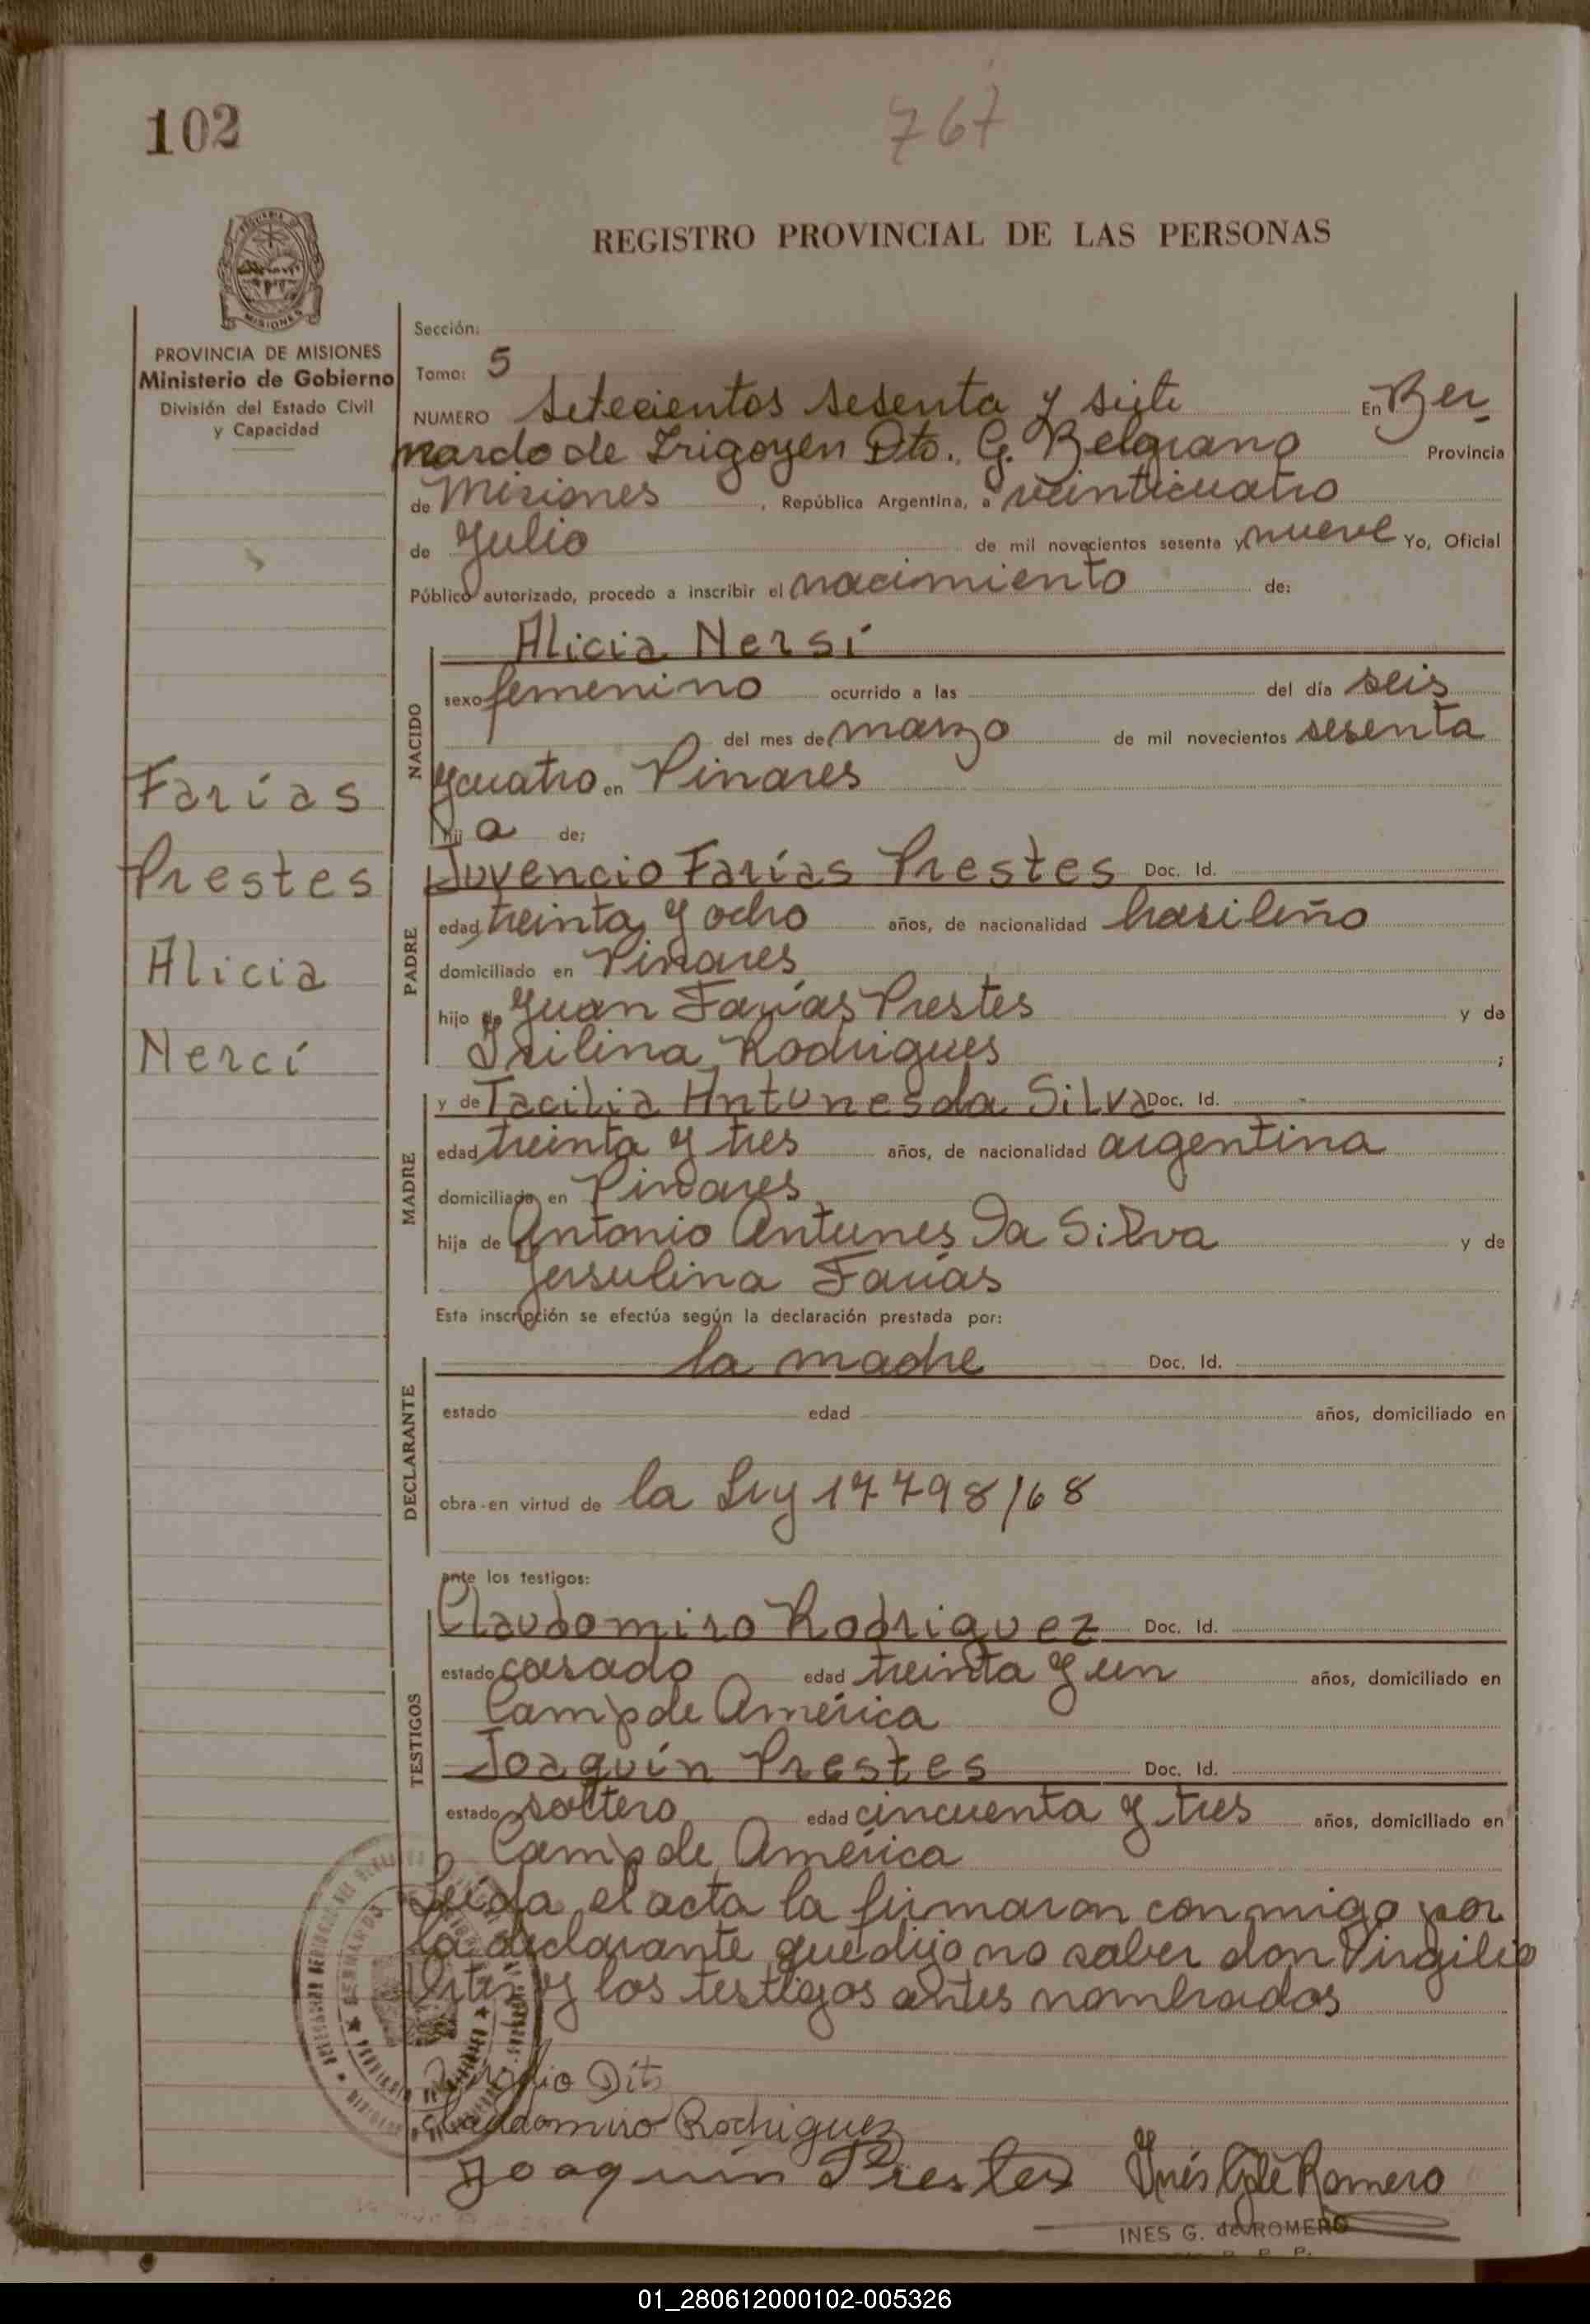 102
767
REGISTRO PROVINCIAL DE LAS PERSONAS
MISIONES
PROVINCIA DE MISIONES
Ministerio de Gobierno
División del Estado Civil
y Capacidad
Sección:
Tomo: 5
NUMERO setecientos sesenta y siete En Ber
nardo de Irigoyen Dto. G. Belgrano Provincia
de Misiones, República Argentina, a veinticuatro
de Julio de mil novecientos sesenta y nueve Yo, Oficial
Público autorizado, procedo a inscribir el nacimiento de:
NACIDO
Alicia Nersi
sexo femenino ocurrido a las del día seis
del mes de marzo de mil novecientos sesenta
y cuatro en Pinares
hij a de:
Farías
Prestes
Alicia
Nercí
PADRE
Juvencio Farías Prestes Doc. Id.
edad treinta y ocho años, de nacionalidad brasileño
domiciliado en Pinares
hijo de Juan Farías Prestes y de
Rodrigues ;
MADRE
y de Tacilia Antunes da Silva Doc. Id.
edad treinta y tres años, de nacionalidad argentina
domiciliada en Pinares
hija de Antonio Antunes Da Silva y de
Jersulina Farías
Esta inscripción se efectúa según la declaración prestada por:
DECLARANTE
la madre Doc. Id.
estado edad años, domiciliado en
obra en virtud de la Ley 17798/68
ante los testigos:
TESTIGOS
Claudomiro Rodriguez Doc. Id.
estado casado edad treinta y un años, domiciliado en
Camp de América
Joaquín Prestes Doc. Id.
estado soltero edad cincuenta y tres años, domiciliado en
Camp de América
Leida el acta la firmaron conmigo por
la declarante que dijo no saber don Virgilio
y los testigos antes nombrados
Claudomiro Rodriguez
Joaquin Prestes Inés G de Romero
INES G. de ROMERO
01_280612000102-005326